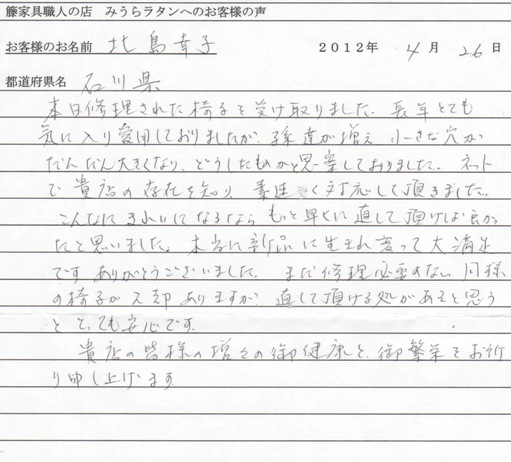 籐家具職人の店 みうらラタンへのお客様の声
お客様のお名前 北島幸子 2012年 4月 26日
都道府県名 石川県
本日修理された椅子を受け取りました。長年とても
気に入り愛用しておりましたが、孫達が増え 小さな穴が
だんだん大きくなり、どうしたものかと思案しておりました。ネット
で貴店の存在を知り、素速く対応して頂きました。
こんなにきれいになるなら もっと早くに直して頂けば良かっ
たと思いました。本当に新品に生まれ変って大満足
です ありがとうございました。 まだ修理必要のない同様
の椅子が 脚ありますが、直して頂ける処があると思う
と とても安心です。
貴店の皆様の増々の御健康と、御繁栄をお祈
り申し上げます